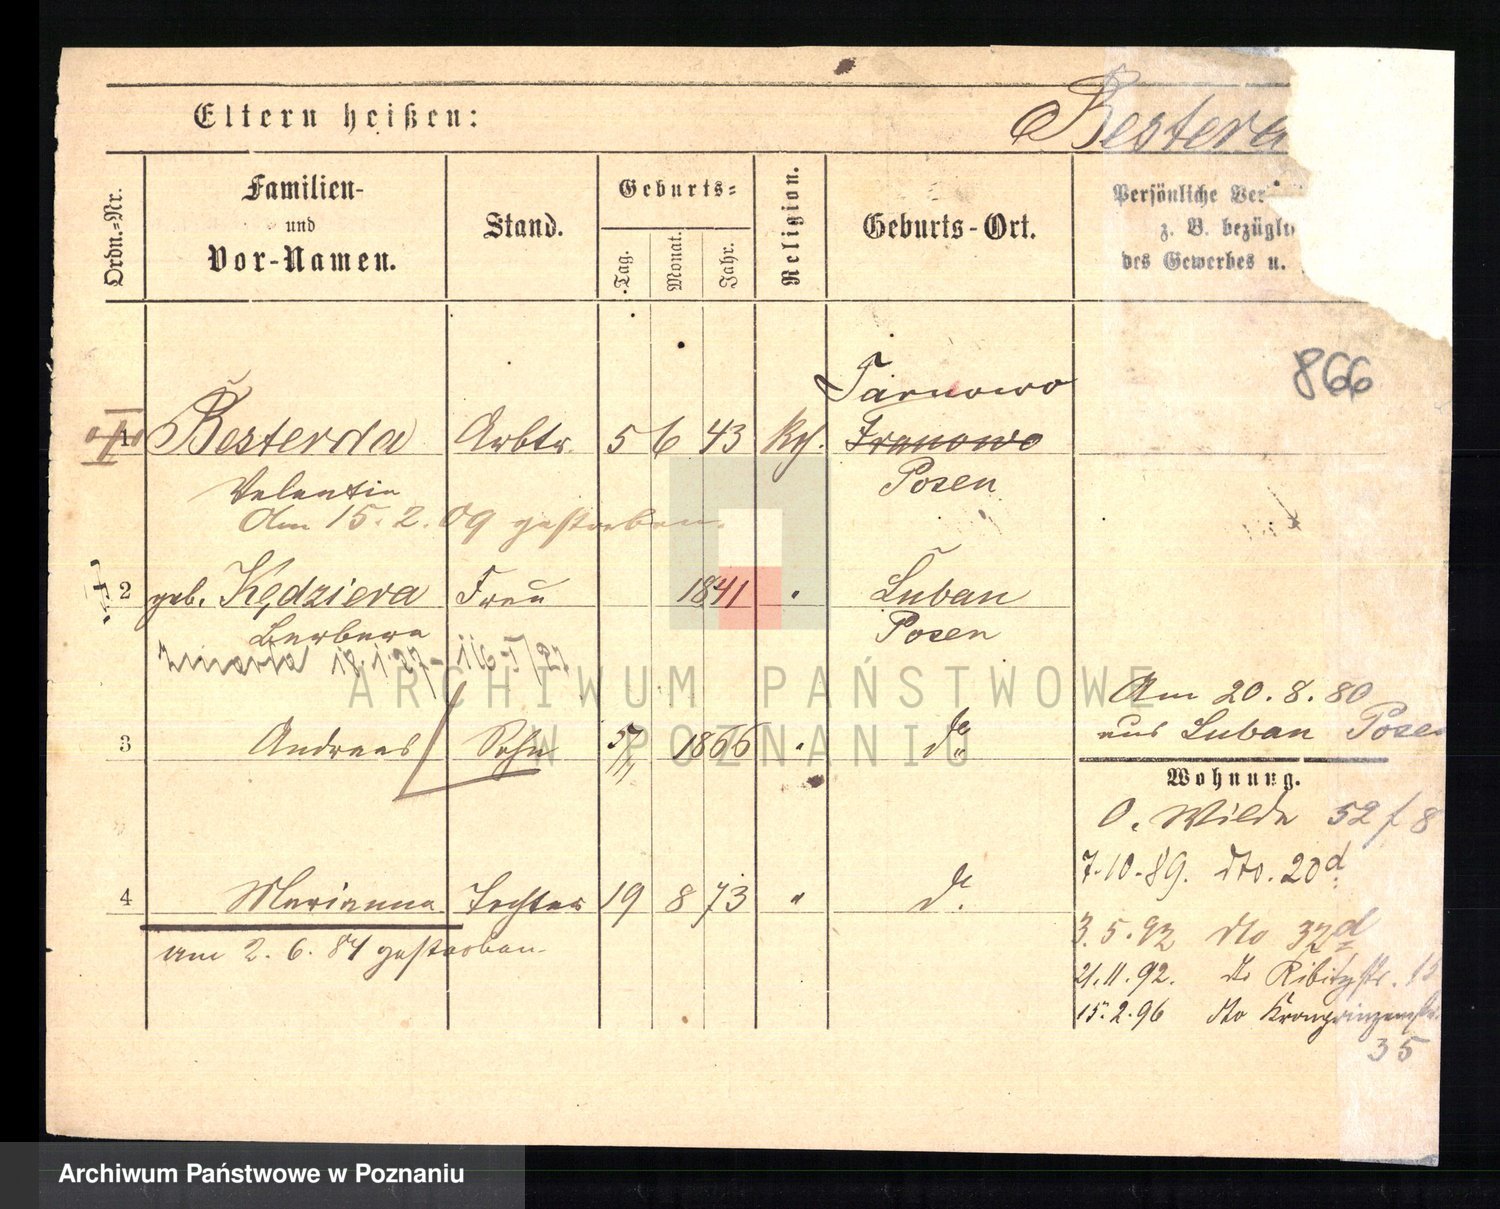 Eltern heißen:
Bestera
Ordn.-Nr.
Familien-
und
Vor-Namen.
Stand.
Geburts-
Tag.
Monat.
Jahr.
Religion.
Geburts-Ort.
Persönliche Ver
z. B. bezügli
des Gewerbes u.
866
Tarnowo
1 Besterda Arbtr. 5 6 43 Kth. Franowo
Valentin Posen
Am 15. 2. 09 gestorben.
2 geb. Kędziera Frau 1841 " Luban
Barbara Posen
zmarła 18.1.27 - 116-I/27
Am 20. 8. 80
aus Luban Posen
3 Andreas Sohn 1866 " do
Wohnung.
O. Wilda 52 f 8
7.10.89. dto. 20d
4 Marianna Tochter 19 8 73 " do
3.5.92 dto 37d
am 2. 6. 84 gestorben
21.11.92. do 15
15.2.96 dto Kronprinzenstr.
35
ARCHIWUM PAŃSTWOWE
W POZNANIU
Archiwum Państwowe w Poznaniu